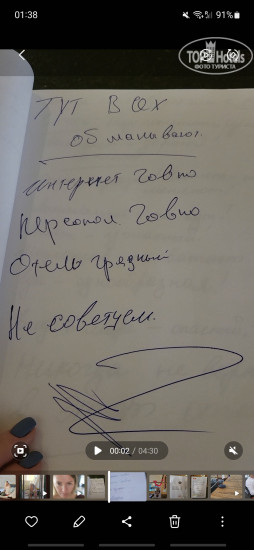 01:38
91%
TOP Hotels
ФОТО ТУРИСТА
ТУТ ВСЕХ
обманывают.
интернет Говно
персонал Говно
Отель грязный
Не советуем.
00:02 / 04:30